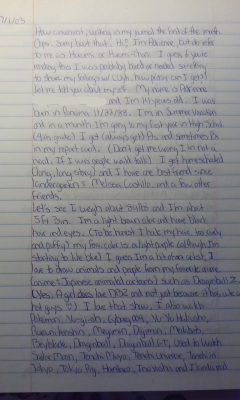 7/1/03
How convenient, writing in my journal the first of the month.
Oops. Sorry bout that. Hi! I'm Adrienne, but do refer
to me as
reading this I was probably back or needed something
to share my feelings on!
let me tell you about myself. My name is Adrienne
and I'm 14 years old. I was
born in Panama 11/22/88. I'm in Summer vacation
and in a month I'm going to my first year in High School
(9th grade) I get (always get) A's and sometimes B's
in my report card. (Don't get me wrong I'm not a
nerd. If I was people would talk!) I get homeschooled
(long, long story) and I have one best friend since
Kindergarten: Melissa Castillo, and a few other
friends.
Let's see I weigh about 91 lbs and I'm about
5 ft. 3 in. I'm a light brown color and have black
hair and eyes. (To be honest I hate my hair, too curly
and puffy) my fav color is a light purple (although I'm
starting to like blue) I guess I'm a bit of an artist, I
like to draw animals and people from my favorite anime
(anime = Japanese animated cartoons) such as Dragonball Z.
Yes. A girl does like DBZ and not just because it has cute
hot guys! I love that show. I also watch
Pokémon, Yugioh, Cyborg 009, Yu Yu Hakusho,
Rurouni Kenshin, Megaman, Digimon, Medabots,
Beyblade, Dragonball, Dragonball GT, used to watch
Sailor Moon, Tenchi Muyo, Tenchi Universe, Tenchi in
Tokyo, Tokyo Pig, Hamtaro, Inuyasha and I kinda read